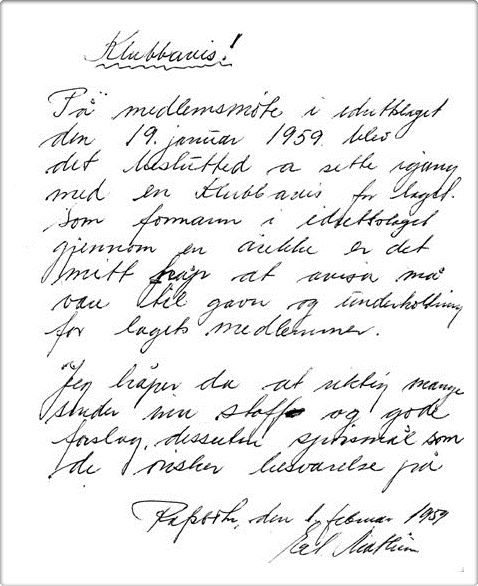 Klubbavis!
På medlemsmöte i idrettslaget
den 19. januar 1959. blev
det beslutted a sette igang
med en Klubbavis for laget.
Som formann i idrettslaget
gjennom en årekke er det
mitt håp at avisa må
være til gavn og underholdning
for lagets medlemmer.
Jeg håper da at riktig mange
sender inn stoff og gode
forslag, dessuten spörsmål som
de önsker besvarelse på
den 1. februar 1959